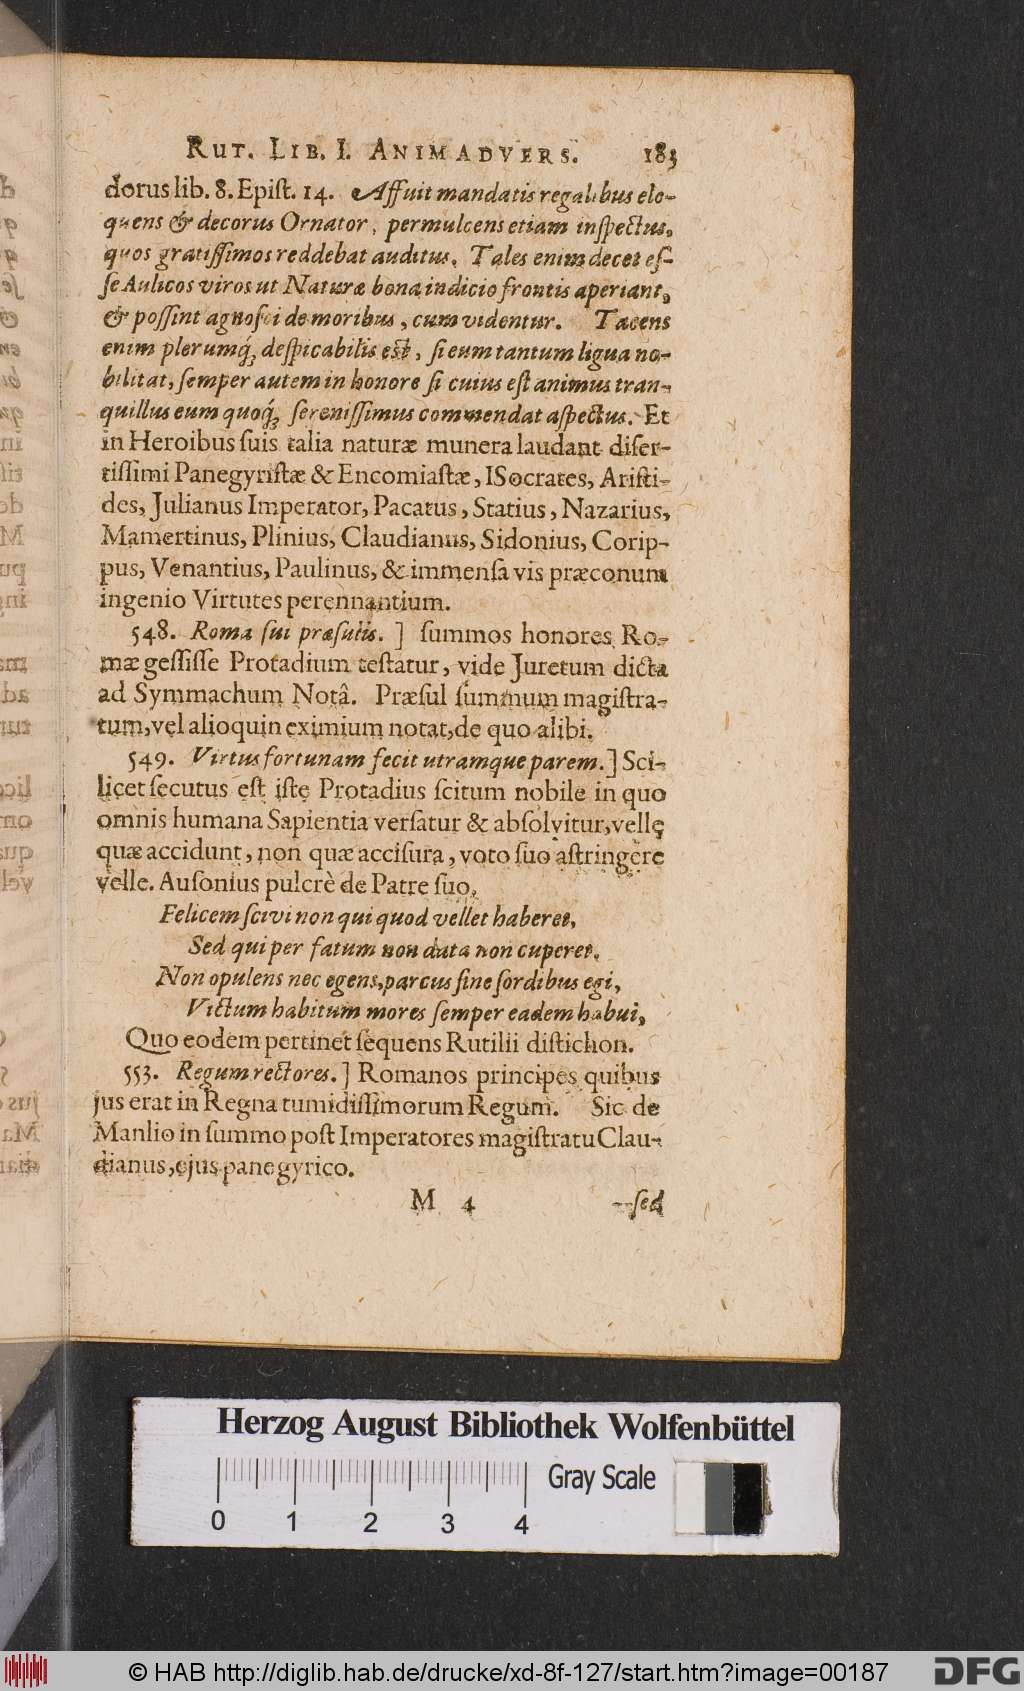 RUT. LIB. I. ANIMADVERS. 183
dorus lib. 8. Epiſt. 14. Affuit mandatis regalibus elo-
quens & decorus Ornator, permulcens etiam inſpectus,
quos gratiſſimos reddebat auditus. Tales enim decet eſ-
ſe Aulicos viros ut Naturæ bona indicio frontis aperiant,
& poſſint agnoſci de moribus, cum videntur. Tacens
enim plerumq́ꝫ deſpicabilis eſt, ſi eum tantum ligua no-
bilitat, ſemper autem in honore ſi cuius eſt animus tran-
quillus eum quoq́ꝫ ſereniſſimus commendat aſpectus. Et
in Heroibus ſuis talia naturæ munera laudant diſer-
tiſſimi Panegyriſtæ & Encomiaſtæ, ISocrates, Ariſti-
des, Julianus Imperator, Pacatus, Statius, Nazarius,
Mamertinus, Plinius, Claudianus, Sidonius, Corip-
pus, Venantius, Paulinus, & immenſa vis præconum
ingenio Virtutes perennantium.
548. Roma ſui præſulis. ] ſummos honores Ro-
mæ geſſiſſe Protadium teſtatur, vide Juretum dicta
ad Symmachum Notâ. Præſul ſummum magiſtra-
tum, vel alioquin eximium notat, de quo alibi.
549. Virtus fortunam fecit utramque parem. ] Sci-
licet ſecutus eſt iſte Protadius ſcitum nobile in quo
omnis humana Sapientia verſatur & abſolvitur, velle
quæ accidunt, non quæ acciſura, voto ſuo aſtringere
velle. Auſonius pulcrè de Patre ſuo,
Felicem ſcivi non qui quod vellet haberet,
Sed qui per fatum non data non cuperet.
Non opulens nec egens, parcus ſine ſordibus egi,
Victum habitum mores ſemper eadem habui,
Quo eodem pertinet ſequens Rutilii diſtichon.
553. Regum rectores. ] Romanos principes quibus
jus erat in Regna tumidiſſimorum Regum. Sic de
Manlio in ſummo poſt Imperatores magiſtratu Clau-
dianus, ejus panegyrico.
M 4 --ſed
Herzog August Bibliothek Wolfenbüttel
Gray Scale
0 1 2 3 4
© HAB http://diglib.hab.de/drucke/xd-8f-127/start.htm?image=00187
DFG